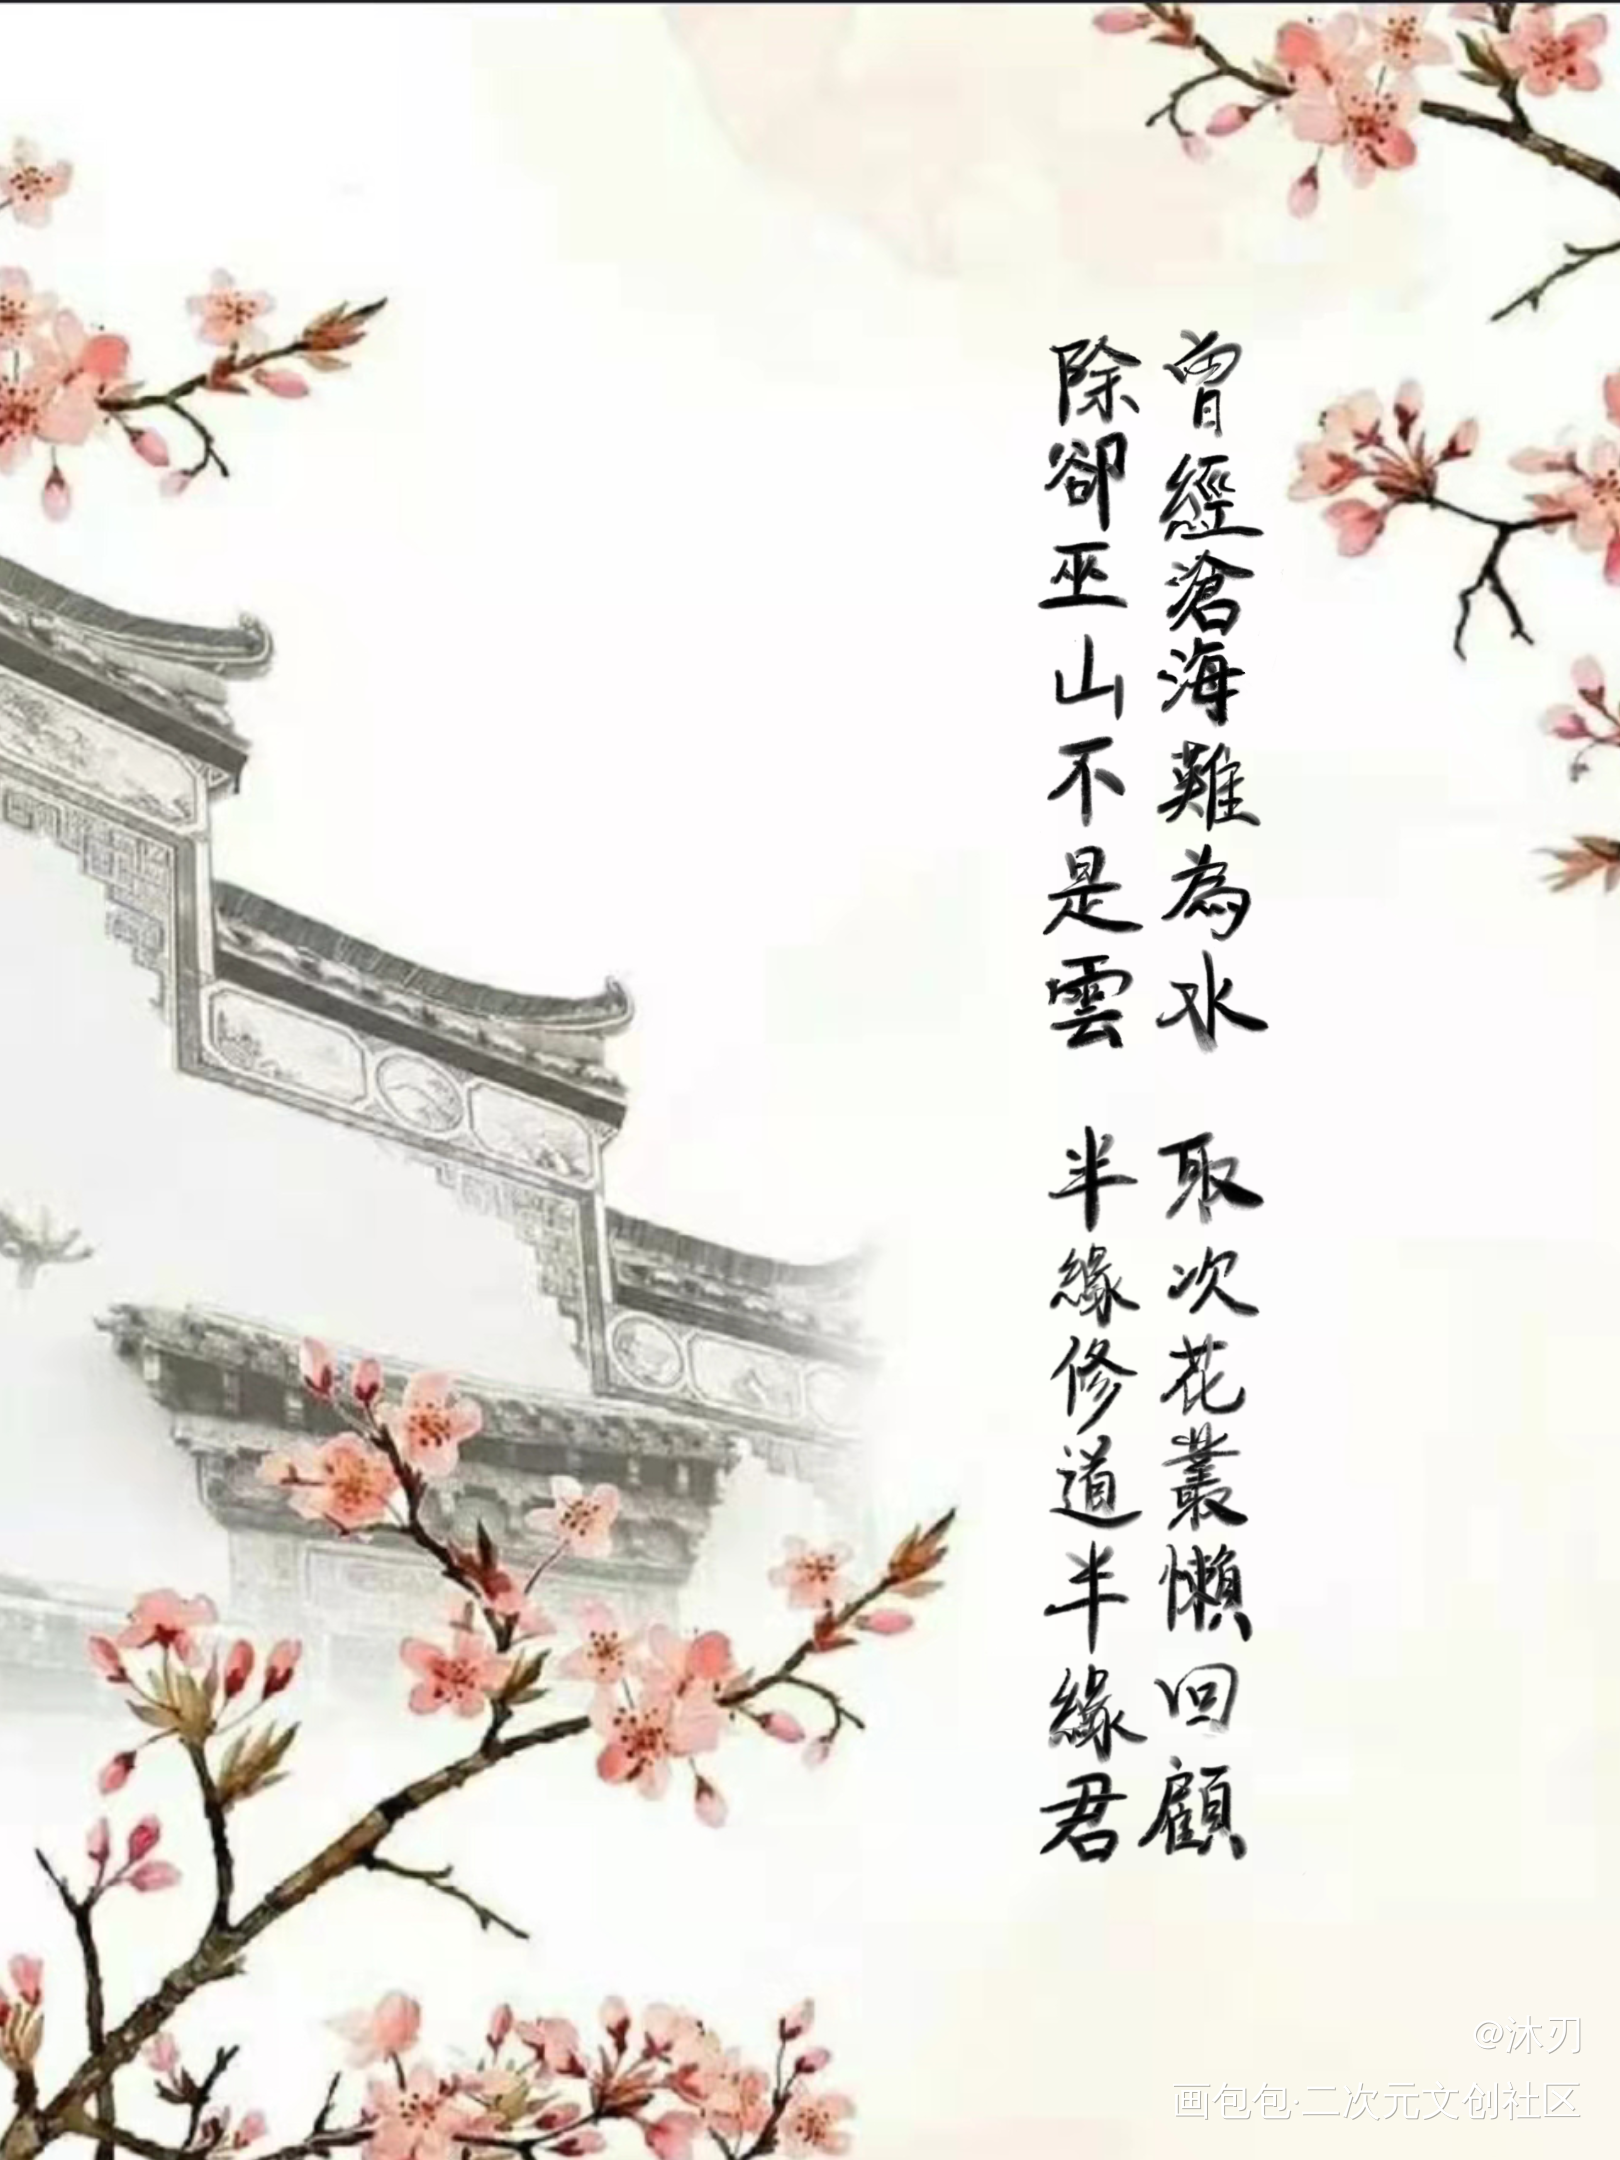 曾經滄海難為水
除卻巫山不是雲
取次花叢懶回顧
半緣修道半緣君
@沐刃
画包包·二次元文创社区